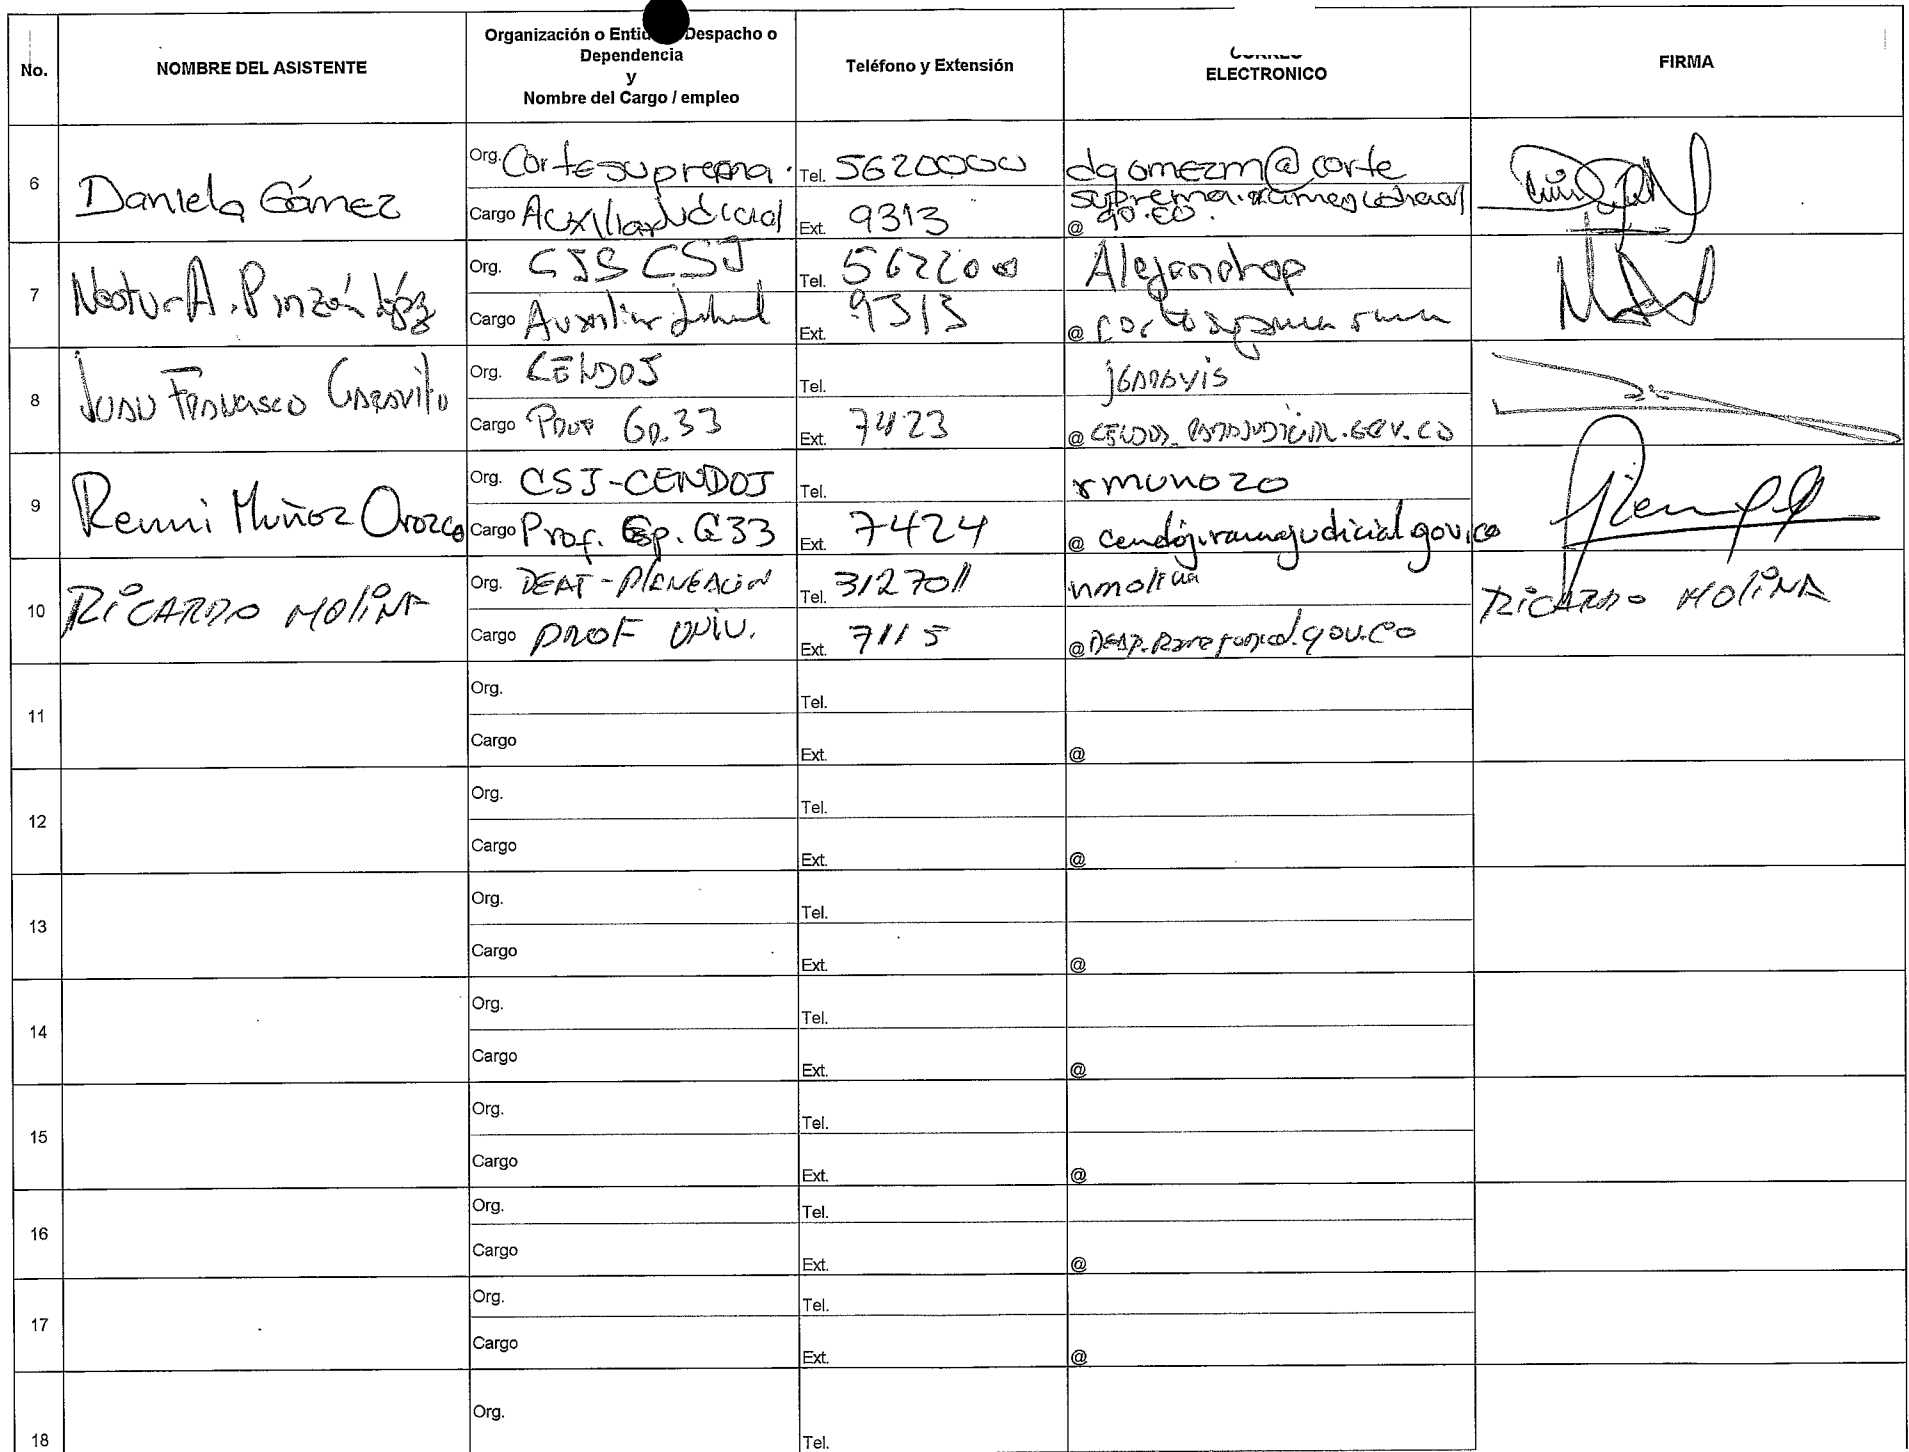 No.
NOMBRE DEL ASISTENTE
Organización o Despacho o
Dependencia
y
Nombre del Cargo / empleo
Teléfono y Extensión
ELECTRONICO
FIRMA
6
Daniela Gómez
Org. Corte suprema.
Cargo Auxiliar Judicial
Tel. 5620000
Ext. 9313
dgomezm@corte
suprema.
@ go.co.
7
A. Pinzón López
Org. CSJ
Cargo Auxiliar
Tel. 562200
Ext. 9313
Alejandrop
@
8
Juan Francisco Garavito
Org. CENDOJ
Cargo Prof GD. 33
Tel.
Ext. 7423
jgaravis
@ CENDOJ.RAMAJUDICIAL.GOV.CO
9
Remi Muñoz Orozco
Org. CSJ-CENDOJ
Cargo Prof. Esp. G33
Tel.
Ext. 7424
rmunozo
@ cendoj.ramajudicial.gov.co
10
RICARDO MOLINA
Org. DEAJ - PLANEACION
Cargo PROF UNIV.
Tel. 3127011
Ext. 7115
@DEAJ. gov.co
RICARDO MOLINA
11
Org.
Cargo
Tel.
Ext.
@
12
Org.
Cargo
Tel.
Ext.
@
13
Org.
Cargo
Tel.
Ext.
@
14
Org.
Cargo
Tel.
Ext.
@
15
Org.
Cargo
Tel.
Ext.
@
16
Org.
Cargo
Tel.
Ext.
@
17
Org.
Cargo
Tel.
Ext.
@
18
Org.
Tel.